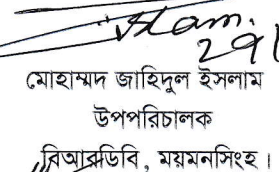 291
মোহাম্মদ জাহিদুল ইসলাম
উপপরিচালক
বিআরডিবি, ময়মনসিংহ।